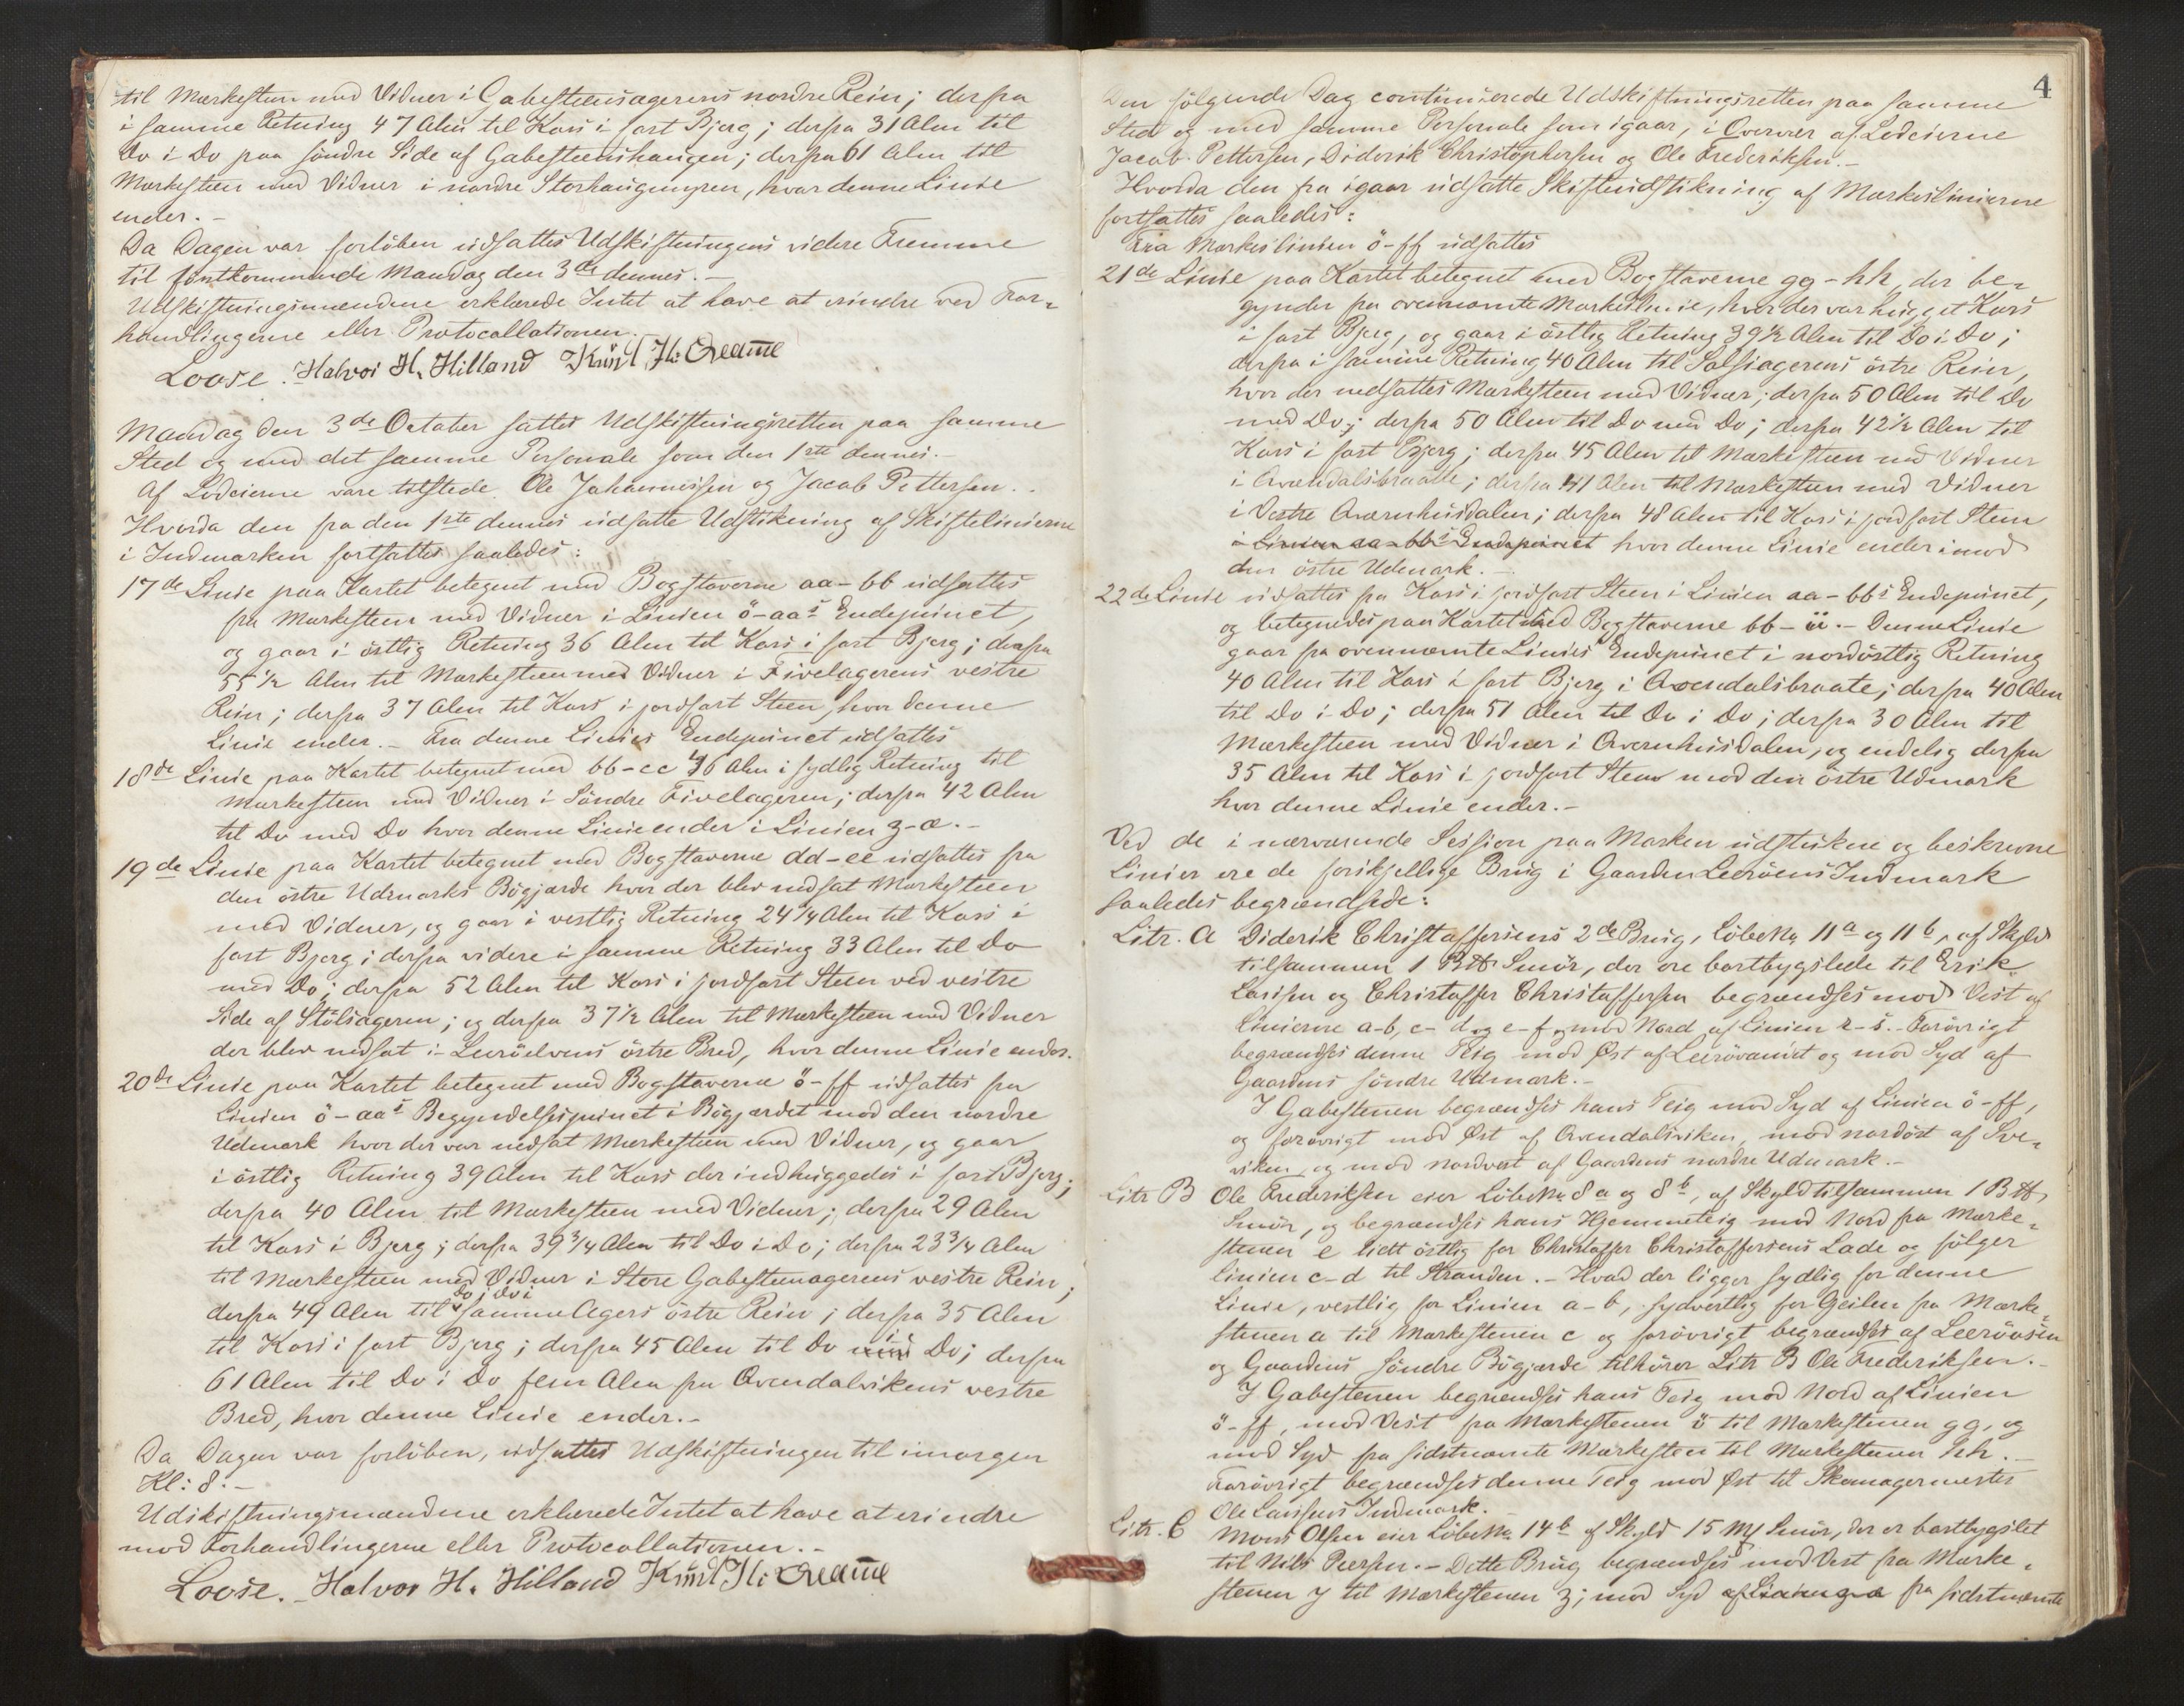 til Mærkesteen med Vidner i Gabesteensagerens nordre Rein; derfra
i samme Retning 47 Alen til Kors i fast Bjerg; derfra 31 Alen til
Do i Do paa søndre Side af Gabesteenshaugen; derfra 61 Alen til
Mærkesteen med Vidner i nordre Storhaugmyren, hvor denne Linie
ender.-
Da Dagen var forløben udsattes Udskiftningens videre Fremme
til førstkommende Mandag den 3die dennes.-
Udskiftningsmændene erklærede Intet at have at erindre ved For-
handlingerne eller Protocollationen.
Loose. Halvor H. Hilland Knud H:
Mandag den 3de October sattes Udskiftningsretten paa samme
Sted og med det samme Personale som den 1ste dennes.-
Af Lodeierne vare tilstede Ole Johannessen og Jacob Pettersen.-
Hvorda den fra den 1ste dennes udsatte Udstikning af Skiftelinierne
i Indmarken fortsattes saaledes:
17de Linie paa Kartet betegnet med Bogstaverne aa-bb udsattes
fra Mærkesteen med Vidner i Linien ö-aas Endepunct,
og gaar i østlig Retning 36 Alen til Kors i fast Bjerg; derfra
55 1/2 Alen til Mærkesteen med Vidner i Fivelagerens vestre
Rein; derfra 37 Alen til Kors i jordfast Steen, hvor denne
Linie ender.- Fra denne Linies Endepunct udsattes
18de Linie paa Kartet betegnet med bb-cc 46 Alen i sydlig Retning til
Mærkesteen med Vidner i Søndre Fivelageren; derfra 42 Alen
til Do med Do hvor denne Linie ender i Linien z-æ.-
19de Linie paa Kartet betegnet med Bogstaverne dd-ee udsattes fra
den østre Udmarks Bøgjærde hvor der blev nedsat Mærkesteen
med Vidner, og gaar i vestlig Retning 24 1/4 Alen til Kors i
fast Bjerg; derfra videre i samme Retning 33 Alen til Do
med Do; derfra 52 Alen til Kors i jordfast Steen ved vestre
Side af Stølsageren; og derfra 37 1/2 Alen til Mærkesteen med Vidner
der blev nedsat i Leeröelvens østre Bred, hvor denne Linie ender.
20de Linie paa Kartet betegnet med Bogstaverne ö-ff udsattes fra
Linien ö-aas Begyndelsespunct i Bøgjærdet mod den nordre
Udmark hvor der var nedsat Mærkesteen med Vidner, og gaar
i østlig Retning 39 Alen til Kors der indhuggedes i fast Bjerg;
derfra 40 Alen til Mærkesteen med Vidner; derfra 29 Alen
til Kors i Bjerg; derfra 39 3/4 Alen til Do i Do; derfra 23 3/4 Alen
til Mærkesteen med Vidner i Store Gabesteenagerens vestre Rein;
derfra 49 Alen til do i do i samme Agers østre Rein; derfra 35 Alen
til Kors i fast Bjerg; derfra 45 Alen til Do i Do; derfra
61 Alen til Do i Do fem Alen fra Qvendalvikens vestre
Bred, hvor denne Linie ender.-
Da Dagen var forløben, udsattes Udskiftningen til imorgen
Kl: 8.-
Udskiftningsmændene erklærede Intet at have at erindre
mod Forhandlingerne eller Protocollationen.-
Loose. Halvor H. Hilland Knud H:
4
Den følgende Dag continuerede Udskiftningsretten paa samme
Sted og med samme Personale som igaar, i Overvær af Lodeierne
Jacob Pettersen, Diderik Christophersen og Ole Frederiksen.-
Hvorda den fra igaar udsatte Skifteudstikning af Mærkeslinierne
fortsattes saaledes:
Fra Mærkeslinien ö-ff udsattes
21de Linie paa Kartet betegnet med Bogstaverne gg-hh, der be-
gynder fra ovennævnte Mærkeslinie, hvor der var hugget Kors
i fast Bjerg, og gaar i østlig Retning 39 1/2 Alen til Do i Do;
derfra i samme Retning 40 Alen til Salsiagerens østre Rein,
hvor der nedsattes Mærkesteen med Vidner; derfra 50 Alen til Do
med Do; derfra 50 Alen til Do med Do; derfra 42 1/2 Alen til
Kors i fast Bjerg; derfra 45 Alen til Mærkesteen med Vidner
i Qvændalsbraatte; derfra 41 Alen til Mærkesteen med Vidner
i Vestre Qværnhusdalen; derfra 48 Alen til Kors i jordfast Steen
i Linien aa-bbs Endepunct hvor denne Linie ender imod
den østre Udmark.-
22de Linie udsattes fra Kors i jordfast Steen i Linien aa-bbs Endepunct,
og betegnedes paa Kartet med Bogstaverne bb-ii.- Denne Linie
gaar fra ovennævnte Linies Endepunct i nordøstlig Retning
40 Alen til Kors i fast Bjerg i Qvendalsbraate; derfra 40 Alen
til Do i Do; derfra 51 Alen til Do i Do; derfra 30 Alen til
Mærkesteen med Vidner i Qvernhusdalen, og endelig derfra
35 Alen til Kors i jordfast Steen mod den østre Udmark
hvor denne Linie ender.-
Ved de i nærværende Session paa Marken udstukne og beskrevne
Linier ere de forskjellige Brug i Gaarden Leeröens Indmark
saaledes begrændsede:
Litr. A Diderik Christaffersens 2de Brug, Løbe No 11a og 11b, af Skyld
tilsammen 1 B℔ Smör, der ere bortbygslede til Erik
Larssen og Christaffer Christaffersen begrændses mod Vest af
Linierne a-b, c-d og e-f, mod Nord af Linien r-s.- Forøvrigt
begrændses denne Teig mod Øst af Leerövandet og mod Syd af
Gaardens søndre Udmark.-
I Gabestenen begrændses hans Teig mod Syd af Linien ö-ff,
og forøvrigt mod Øst af Qvendalsviken, mod nordøst af Sve-
viken, og mod nordvest af Gaardens nordre Udmark.-
Litr B Ole Frederiksen eier Løbe No 8a og 8b, af Skyld tilsammen 1 B℔
Smör, og begrændses hans Hjemmeteig mod Nord fra Mærke-
stenen e lidt østlig for Christaffer Christaffersens Lade og følger
linien c-d til Stranden.- Hvad der ligger sydlig for denne
Linie, vestlig for Linien a-b, sydvestlig for Geilen fra Mærke-
stenen a til Mærkestenen c og forøvrigt begrændses af Leeröosen
og Gaardens søndre Bøgjærde tilhører Litr B Ole Frederiksen.-
I Gabestenen begrændses hans Teig mod Nord af Linien
ö-ff, mod Vest fra Mærkestenen ö til Mærkestenen gg, og
mod Syd fra sidstnævnte Mærkesten til Mærkestenen hh.-
Forøvrigt begrændses denne Teig mod Øst til Skomagermester
Ole Larssens Indmark.
Litr. C Mons Olsen eier Løbe No 14b af Skyld 15 Mf Smör, der er bortbygslet
til Nils Peersen.- Dette Brug begrændses mod Vest fra Mærke-
stenen y til Mærkestenen z; mod Syd af Linien z-æ fra sidstnævnte